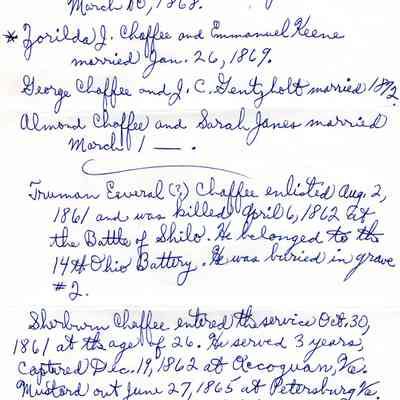 March 10, 1868.
* Zorilda J. Chaffee and Emmanuel Keene
married Jan. 26, 1869.
George Chaffee and J. C. Gentzholt married 1872.
Almond Chaffee and Sarah Janes married
March 1 —.
Truman Esveral (?) Chaffee enlisted Aug. 2,
1861 and was killed April 6, 1862 at
the Battle of Shilo. He belonged to the
14th Ohio Battery. He was buried in grave
#2.
Sherburn Chaffee entered the service Oct. 30,
1861 at the age of 26. He served 3 years,
captured Dec. 19, 1862 at Occoquan, Va.
Mustord out June 27, 1865 at Petersburg Va.